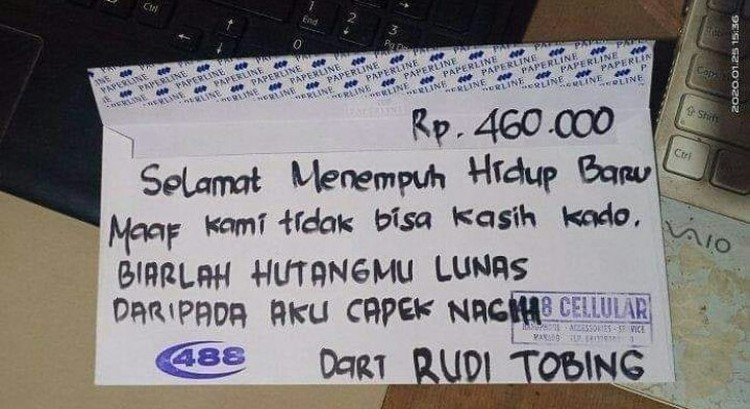 Ctrl
1
End
2
3
Pg Dn
0
PAPERLINE PAPERLINE PAPERLINE PAPERLINE PAPERLINE PAPERLINE
Rp. 460.000
Selamat Menempuh Hidup Baru
Maaf kami tidak bisa kasih kado.
BIARLAH HUTANGMU LUNAS
DARIPADA AKU CAPEK NAGIH
8 CELLULAR
ACCESSORIES - SERVICE
488
DARI RUDI TOBING
Shift
Ctrl
VAIO
2020.01.25 15:36